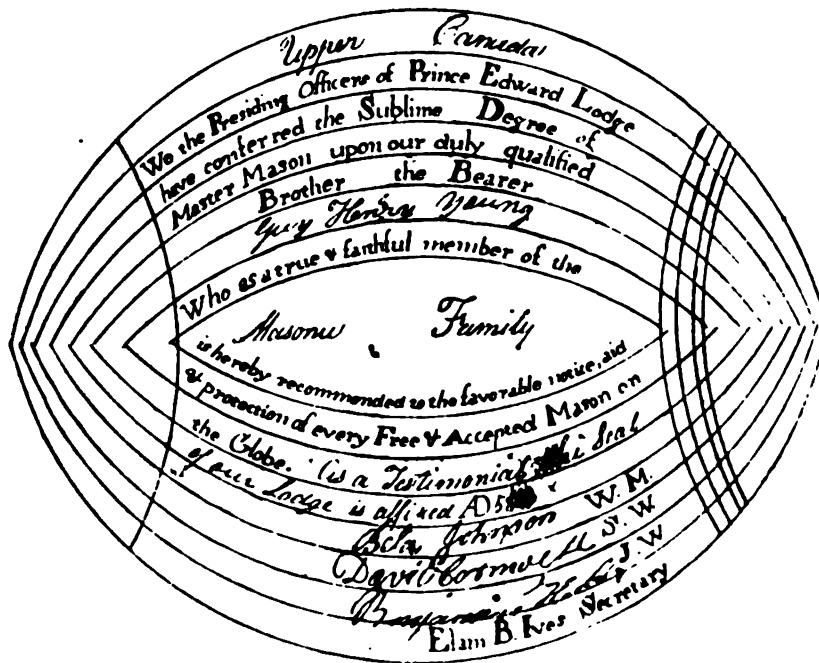 Upper Canada
We the Presiding Officers of Prince Edward Lodge
have conferred the Sublime Degree of
Master Mason upon our duly qualified
Brother the Bearer
Guy Henry Young
Who as a true & faithful member of the
Masonic Family
is hereby recommended to the favorable notice, aid
& protection of every Free & Accepted Mason on
the Globe. as a Testimonial Seal
of our Lodge is affixed AD
Bela Johnson W. M.
David S. W
Benjamin J W
Elam B. Ives Secretary